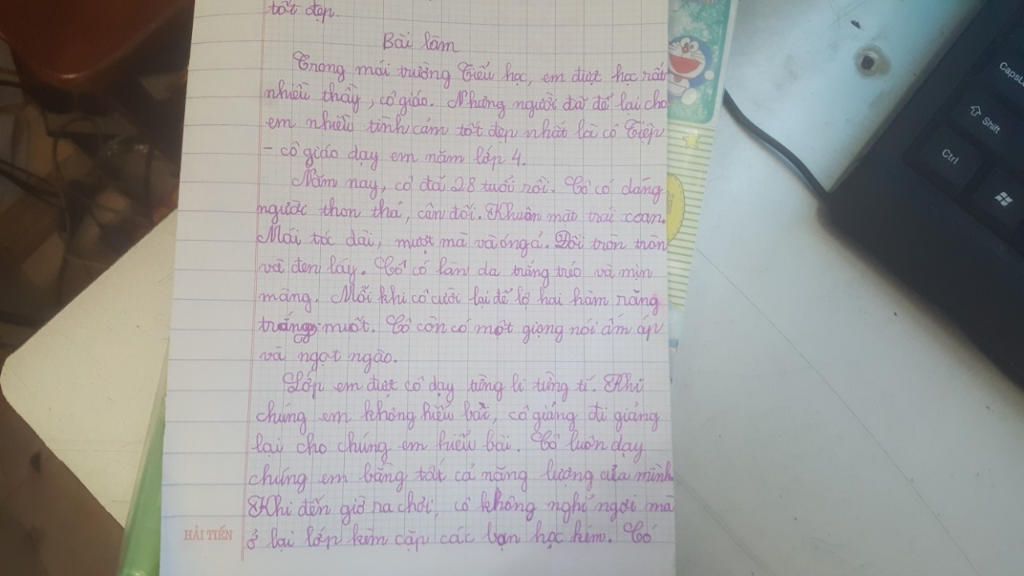 tốt đẹp.
Bài làm
Trong mái trường Tiểu học, em được học rất
nhiều thầy, cô giáo. Nhưng người đã để lại cho
em nhiều tình cảm tốt đẹp nhất là cô Tiệp
- cô giáo dạy em năm lớp 4.
Năm nay, cô đã 28 tuổi rồi. Cô có dáng
người thon thả, cân đối. Khuôn mặt trái xoan.
Mái tóc dài, mượt mà và óng ả. Đôi tròn tròn
và đen láy. Cô có làn da trắng trẻo và mịn
màng. Mỗi khi cô cười lại để lộ hai hàm răng
trắng muốt. Cô còn có một giọng nói ấm áp
và ngọt ngào.
Lớp em được cô dạy từng li từng tí. Khi
chúng em không hiểu bài, cô giảng đi giảng
lại cho chúng em hiểu bài. Cô luôn dạy
chúng em bằng tất cả năng lượng của mình.
Khi đến giờ ra chơi, cô không nghỉ ngơi mà
ở lại lớp kèm cặp các bạn học kém. Có
HẢI TIẾN
CapsL
Shift
Ctrl